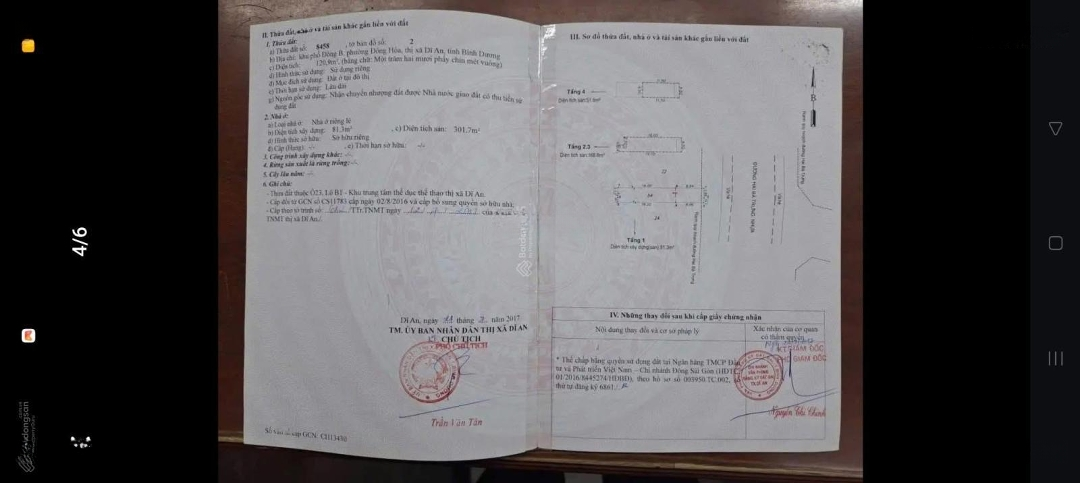 4/6
II. Thửa đất, nhà ở và tài sản khác gắn liền với đất
1. Thửa đất:
a) Thửa đất số: 8458 , tờ bản đồ số: 2
b) Địa chỉ: Khu phố Đông B, phường Đông Hòa, thị xã Dĩ An, tỉnh Bình Dương
c) Diện tích: 120,9m², (bằng chữ: Một trăm hai mươi phẩy chín mét vuông)
d) Hình thức sử dụng: Sử dụng riêng
đ) Mục đích sử dụng: Đất ở tại đô thị
e) Thời hạn sử dụng: Lâu dài
g) Nguồn gốc sử dụng: Nhận chuyển nhượng đất được Nhà nước giao đất có thu tiền sử
dụng đất
2. Nhà ở:
a) Loại nhà ở: Nhà ở riêng lẻ
b) Diện tích xây dựng: 81,3m² , c) Diện tích sàn: 301,7m²
d) Hình thức sở hữu: Sở hữu riêng
đ) Cấp (Hạng): -/- , e) Thời hạn sở hữu: -/-
3. Công trình xây dựng khác: -/-
4. Rừng sản xuất là rừng trồng: -/-
5. Cây lâu năm: -/-
6. Ghi chú:
- Thửa đất thuộc Ô23, Lô B1 - Khu trung tâm thể dục thể thao thị xã Dĩ An.
- Cấp đổi từ GCN số CS11783 cấp ngày 02/8/2016 và cấp bổ sung quyền sở hữu nhà.
- Cấp theo tờ trình số: TTr.TNMT ngày của
TNMT thị xã Dĩ An./
Dĩ An, ngày tháng năm 2017
TM. ỦY BAN NHÂN DÂN THỊ XÃ DĨ AN
CHỦ TỊCH
PHÓ CHỦ TỊCH
Trần Văn Tân
Số vào sổ cấp GCN: CH13430
III. Sơ đồ thửa đất, nhà ở và tài sản khác gắn liền với đất
B
Tầng 4
Tầng 2,3
ĐƯỜNG HAI BÀ TRƯNG NHỰA
24
Tầng 1
Diện tích xây dựng 81.3m²
IV. Những thay đổi sau khi cấp giấy chứng nhận
Nội dung thay đổi và cơ sở pháp lý
Xác nhận của cơ quan
có thẩm quyền
KT GIÁM ĐỐC
PHÓ GIÁM ĐỐC
* Thế chấp bằng quyền sử dụng đất tại Ngân hàng TMCP Đầu
tư và Phát triển Việt Nam – Chi nhánh Đông Sài Gòn (HĐTC
01/2016/8445274/HĐBĐ), theo hồ sơ số 003950.TC.002,
thứ tự đăng ký 6861./
Batdongsan